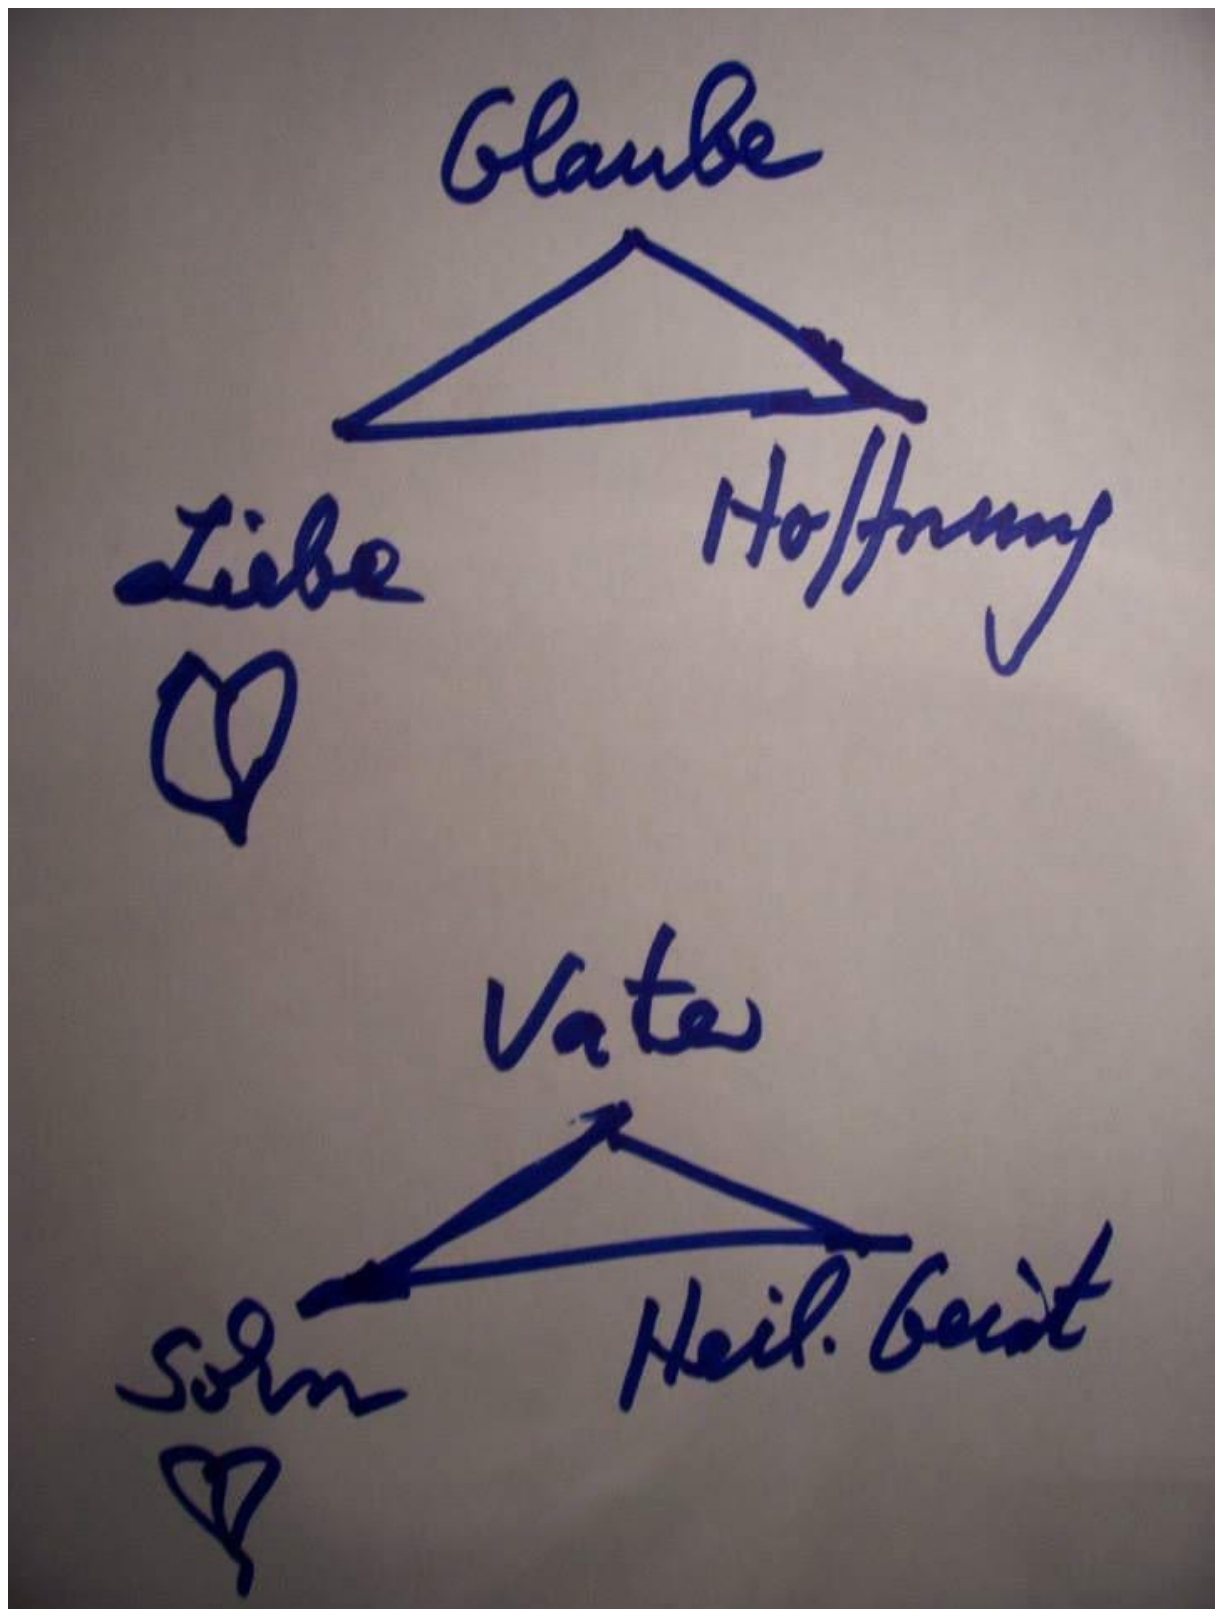 Glaube
Liebe
Hoffnung
Vater
Sohn
Heil. Geist